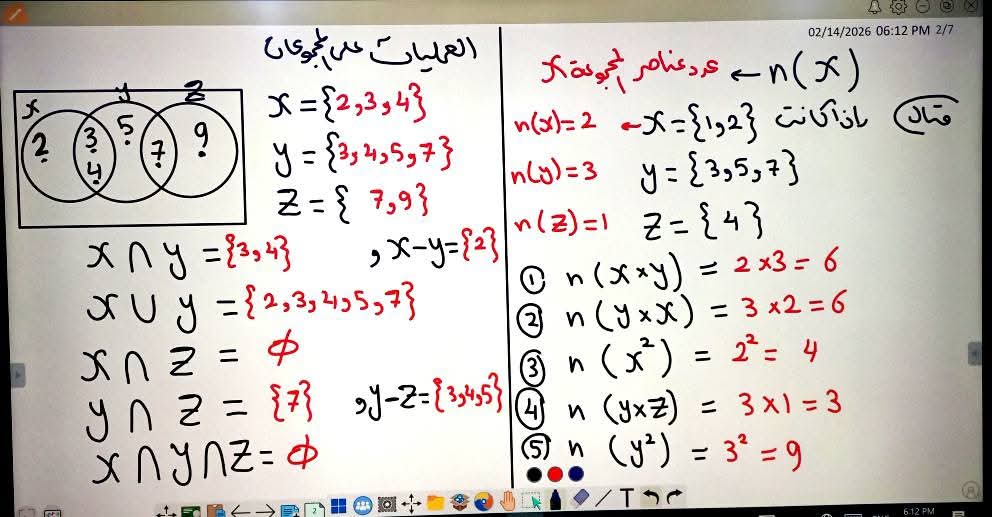 02/14/2026 06:12 PM 2/7
العمليات على المجموعات
x y z
2 3 4 5 7 9
x = {2,3,4}
y = {3,4,5,7}
z = { 7,9}
x ∩ y = {3,4} , x-y={2}
x ∪ y = {2,3,4,5,7}
x ∩ z = ϕ
y ∩ z = {7} , y-z={3,4,5}
x ∩ y ∩ z = ϕ
n(x) ← عدد عناصر المجموعة x
مثال إذا كانت x={1,2} → n(x)=2
y={3,5,7} n(y)=3
z={4} n(z)=1
① n(x×y) = 2×3=6
② n(y×x) = 3×2=6
③ n(x²) = 2²= 4
④ n(y×z) = 3×1=3
⑤ n(y²) = 3²=9
T
6:12 PM